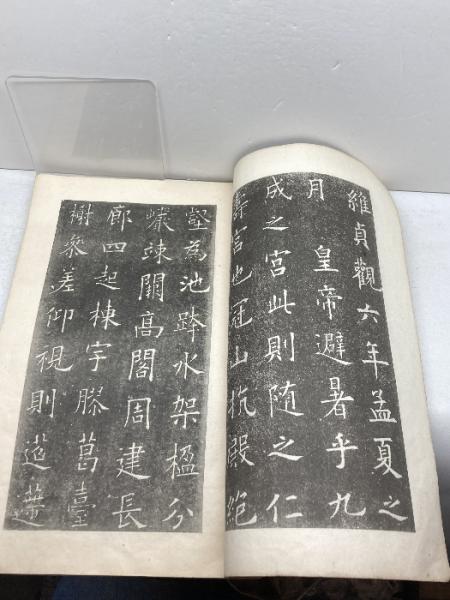 維貞觀六年孟夏之
月 皇帝避暑乎九
成之宮此則随之仁
壽宮也冠山抗殿絕
壑為池跨水架楹分
巖竦闕高閣周建長
廊四起棟宇膠葛臺
榭參差仰視則迢遰